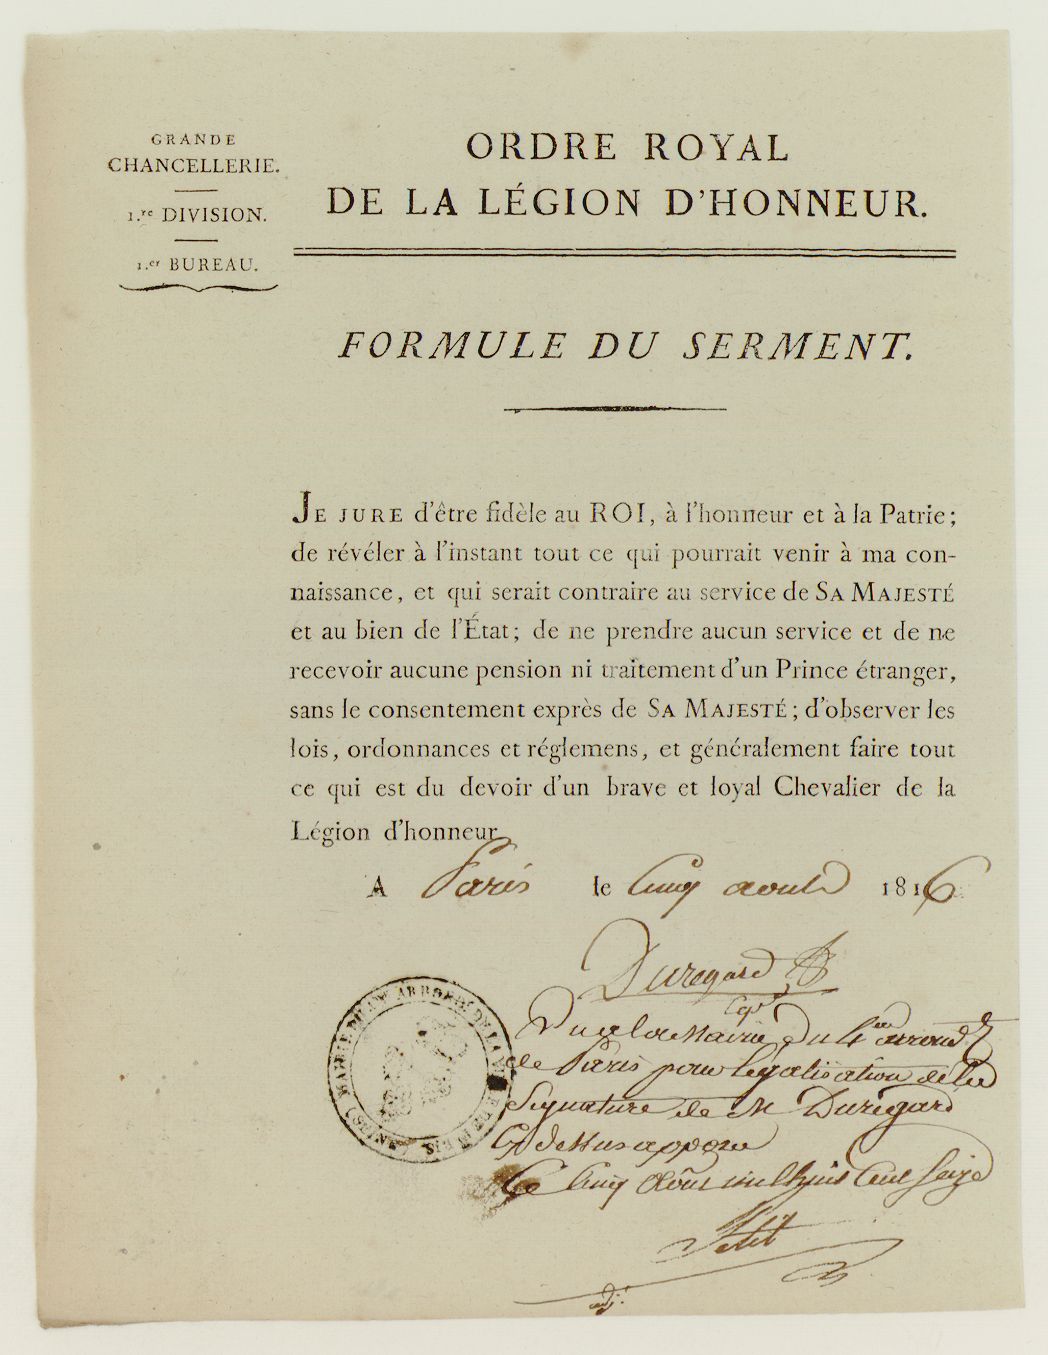 GRANDE
CHANCELLERIE.
1.re DIVISION.
1.er BUREAU.
ORDRE ROYAL
DE LA LÉGION D'HONNEUR.
FORMULE DU SERMENT.
JE JURE d'être fidèle au ROI, à l'honneur et à la Patrie;
de révéler à l'instant tout ce qui pourrait venir à ma con-
naissance, et qui serait contraire au service de SA MAJESTÉ
et au bien de l'État; de ne prendre aucun service et de ne
recevoir aucune pension ni traitement d'un Prince étranger,
sans le consentement exprès de SA MAJESTÉ; d'observer les
lois, ordonnances et réglemens, et généralement faire tout
ce qui est du devoir d'un brave et loyal Chevalier de la
Légion d'honneur.
A Paris le Cinq aout 1816
Duregard
Vu a la Mairie du 4eme arrond.
de Paris pour légalisation de la
Signature de M Duregard
Cy dessus apposée
Ce Cinq Août mil huit Cent Seize
Petit
adj.